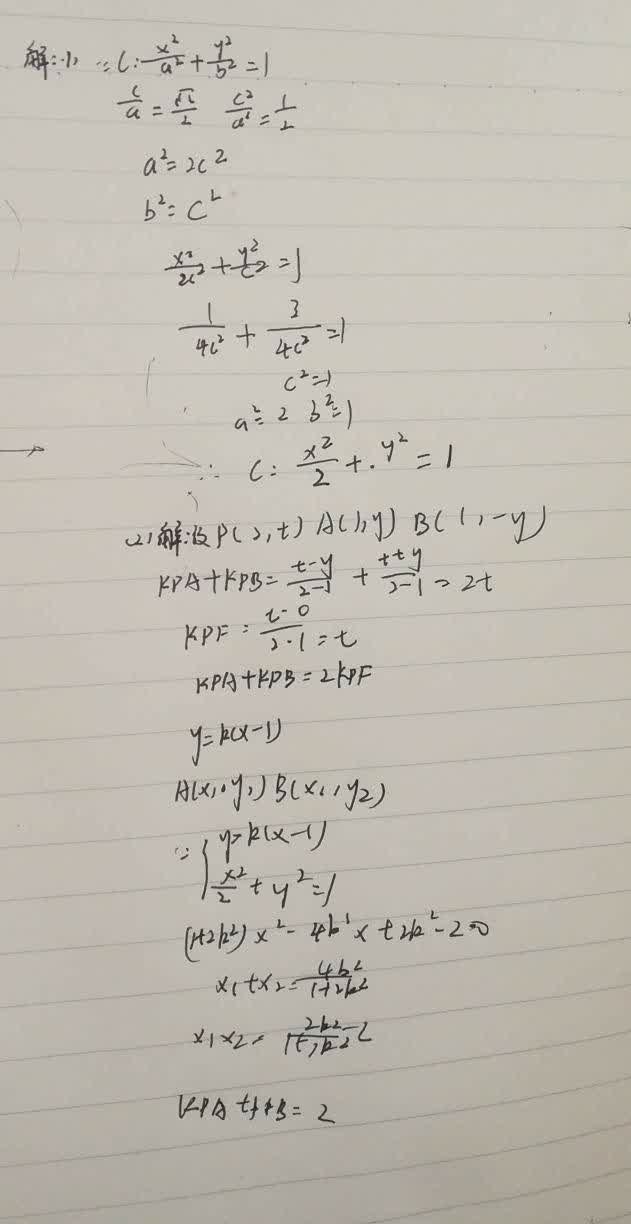 解:(1) ∵C: x²/a² + y²/b² = 1
c/a = √2/2 c²/a² = 1/2
a² = 2c²
b² = c²
x²/2c² + y²/c² = 1
1/4c² + 3/4c² = 1
c² = 1
a² = 2 b² = 1
∴ C: x²/2 + y² = 1
(2)解设P(2,t) A(1,y) B(1,-y)
KPA+KPB = t-y/2-1 + t+y/2-1 = 2t
KPF = t-0/2-1 = t
KPA+KPB = 2KPF
y=k(x-1)
A(x₁,y₁) B(x₂,y₂)
∵ { y=k(x-1)
x²/2 + y² = 1
(1+2k²)x² - 4k²x + 2k² - 2=0
x₁+x₂ = 4k²/1+2k²
x₁x₂ = 2k²-2/1+2k²
KPA+KPB = 2